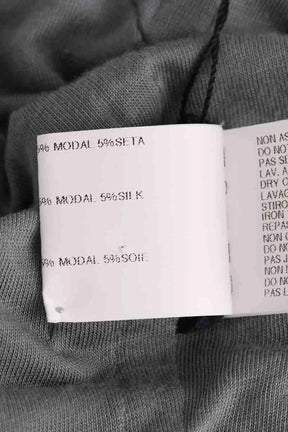 5% MODAL 5%SETA
5% MODAL 5%SILK
5% MODAL 5%SOIE
NON AS
DO NOT
PAS SE
LAV. A
DRY C
LAVAG
STIRO
IRON
REPAS
NON C
DO NO
PAS J
NON
DO NO
PAS L